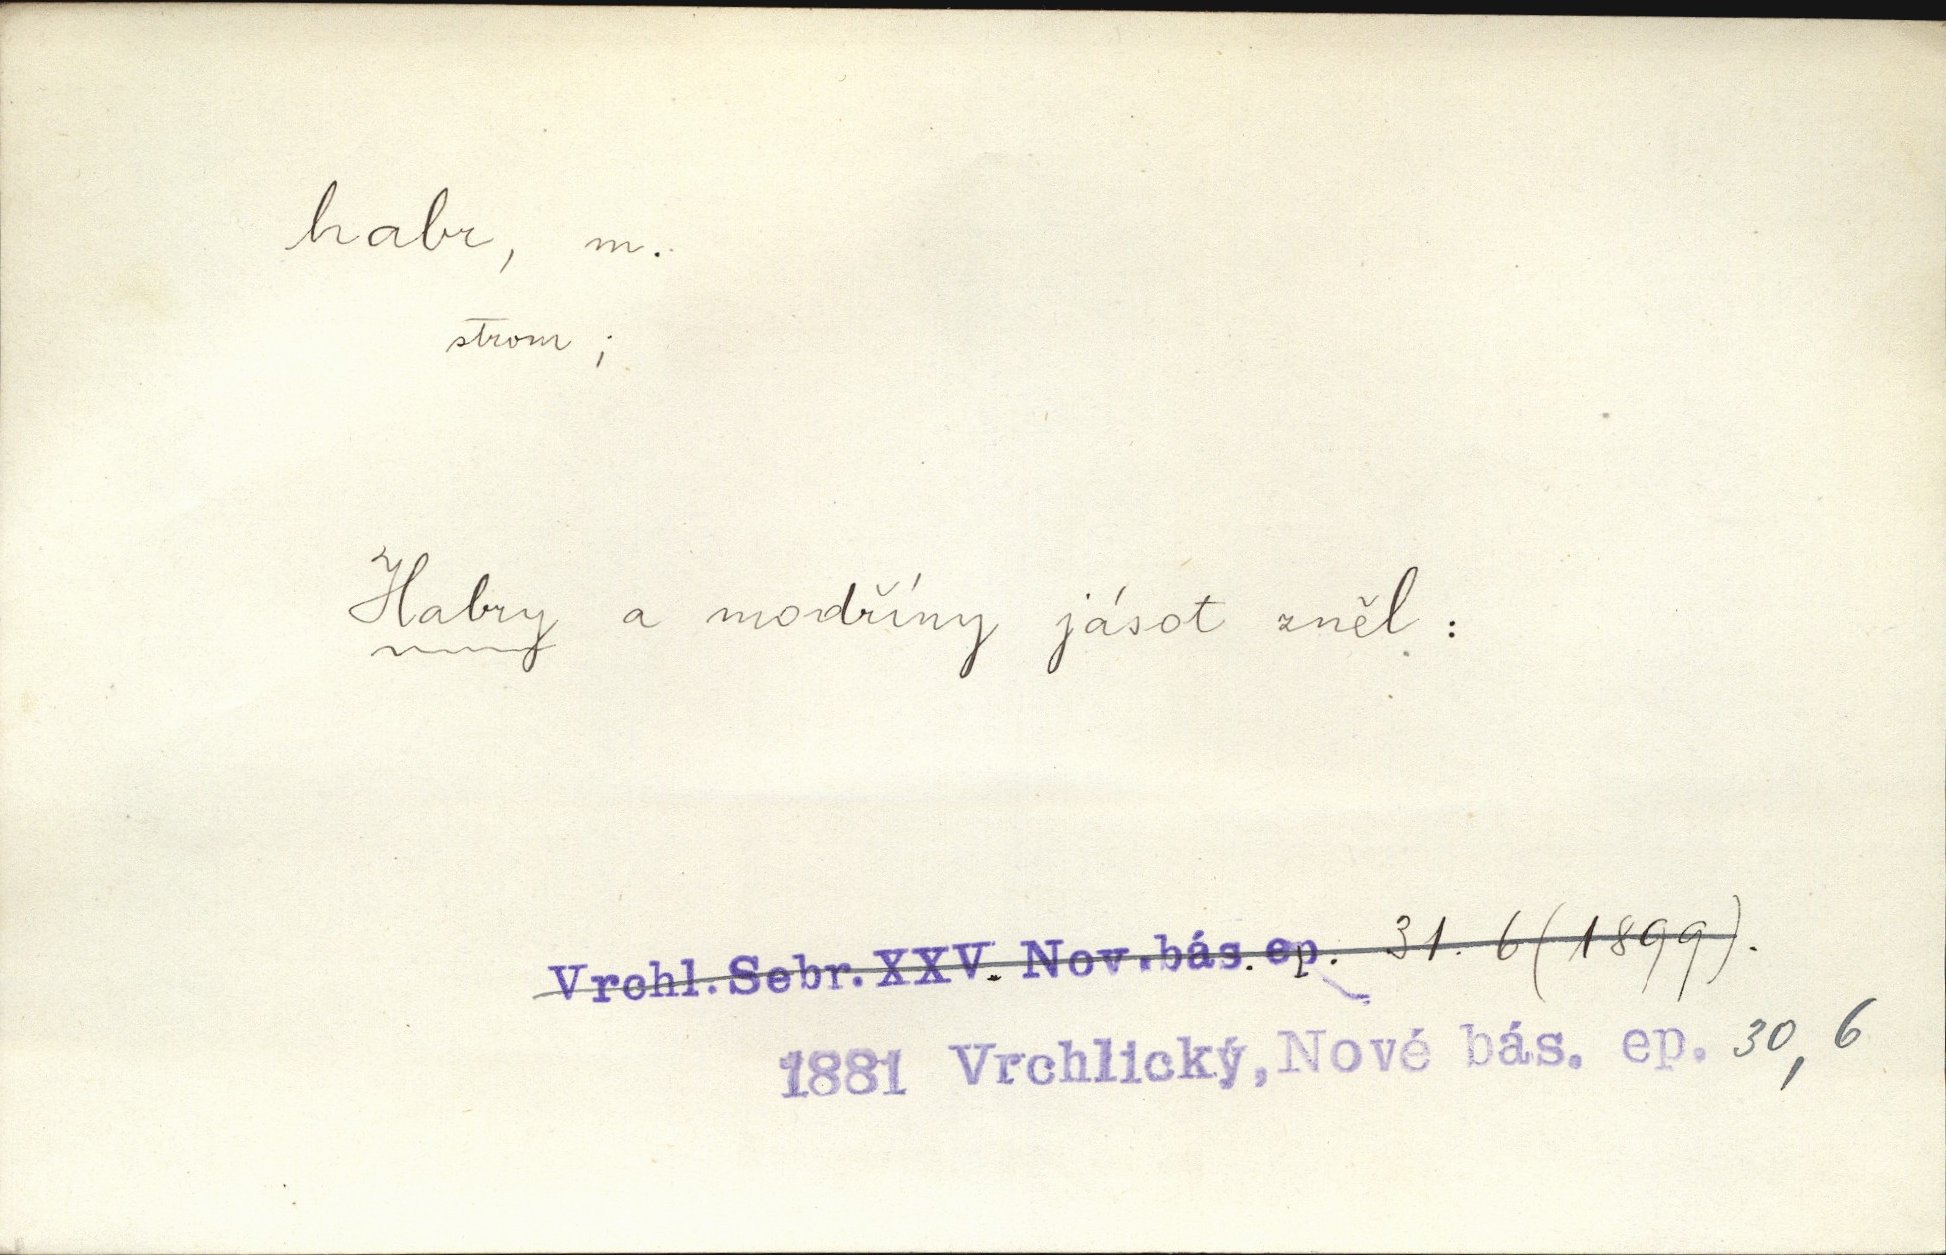 habr, m.
strom ;
Habry a modříny jásot zněl :
Vrchl. Sebr. XXV. Nov. bás. ep. 31. 6 (1899).
1881 Vrchlický, Nové bás. ep. 30, 6